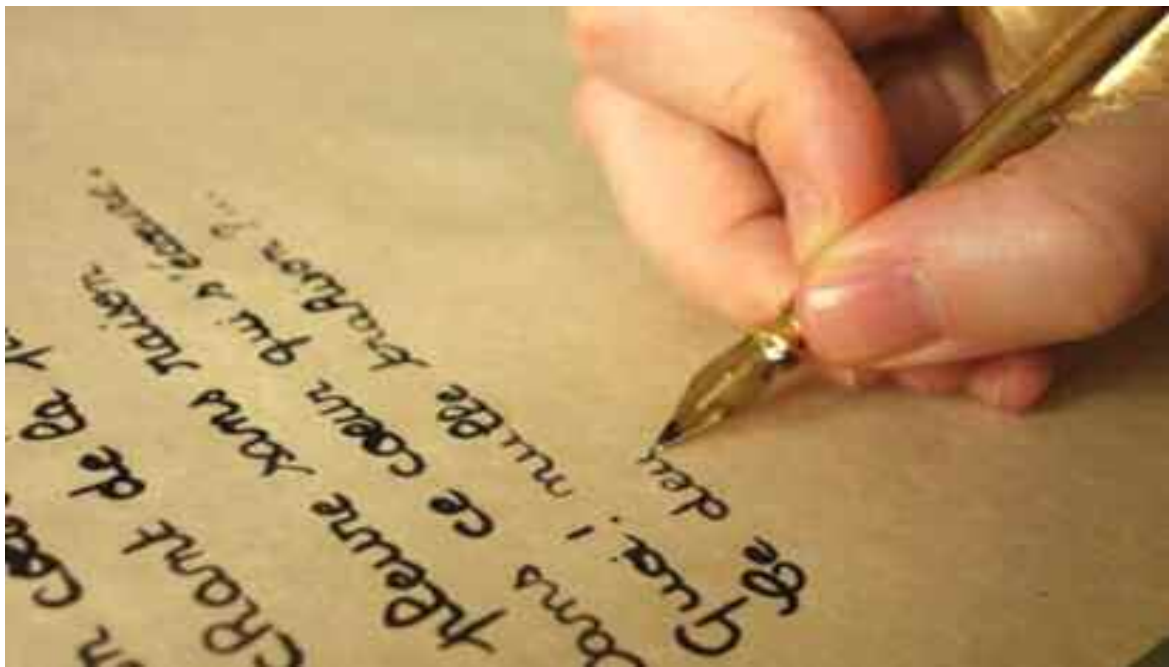 chant de la
pleure sans raison
Dans ce cœur qui s'écœure.
Quoi ! nulle trahison ?...
Ce deu